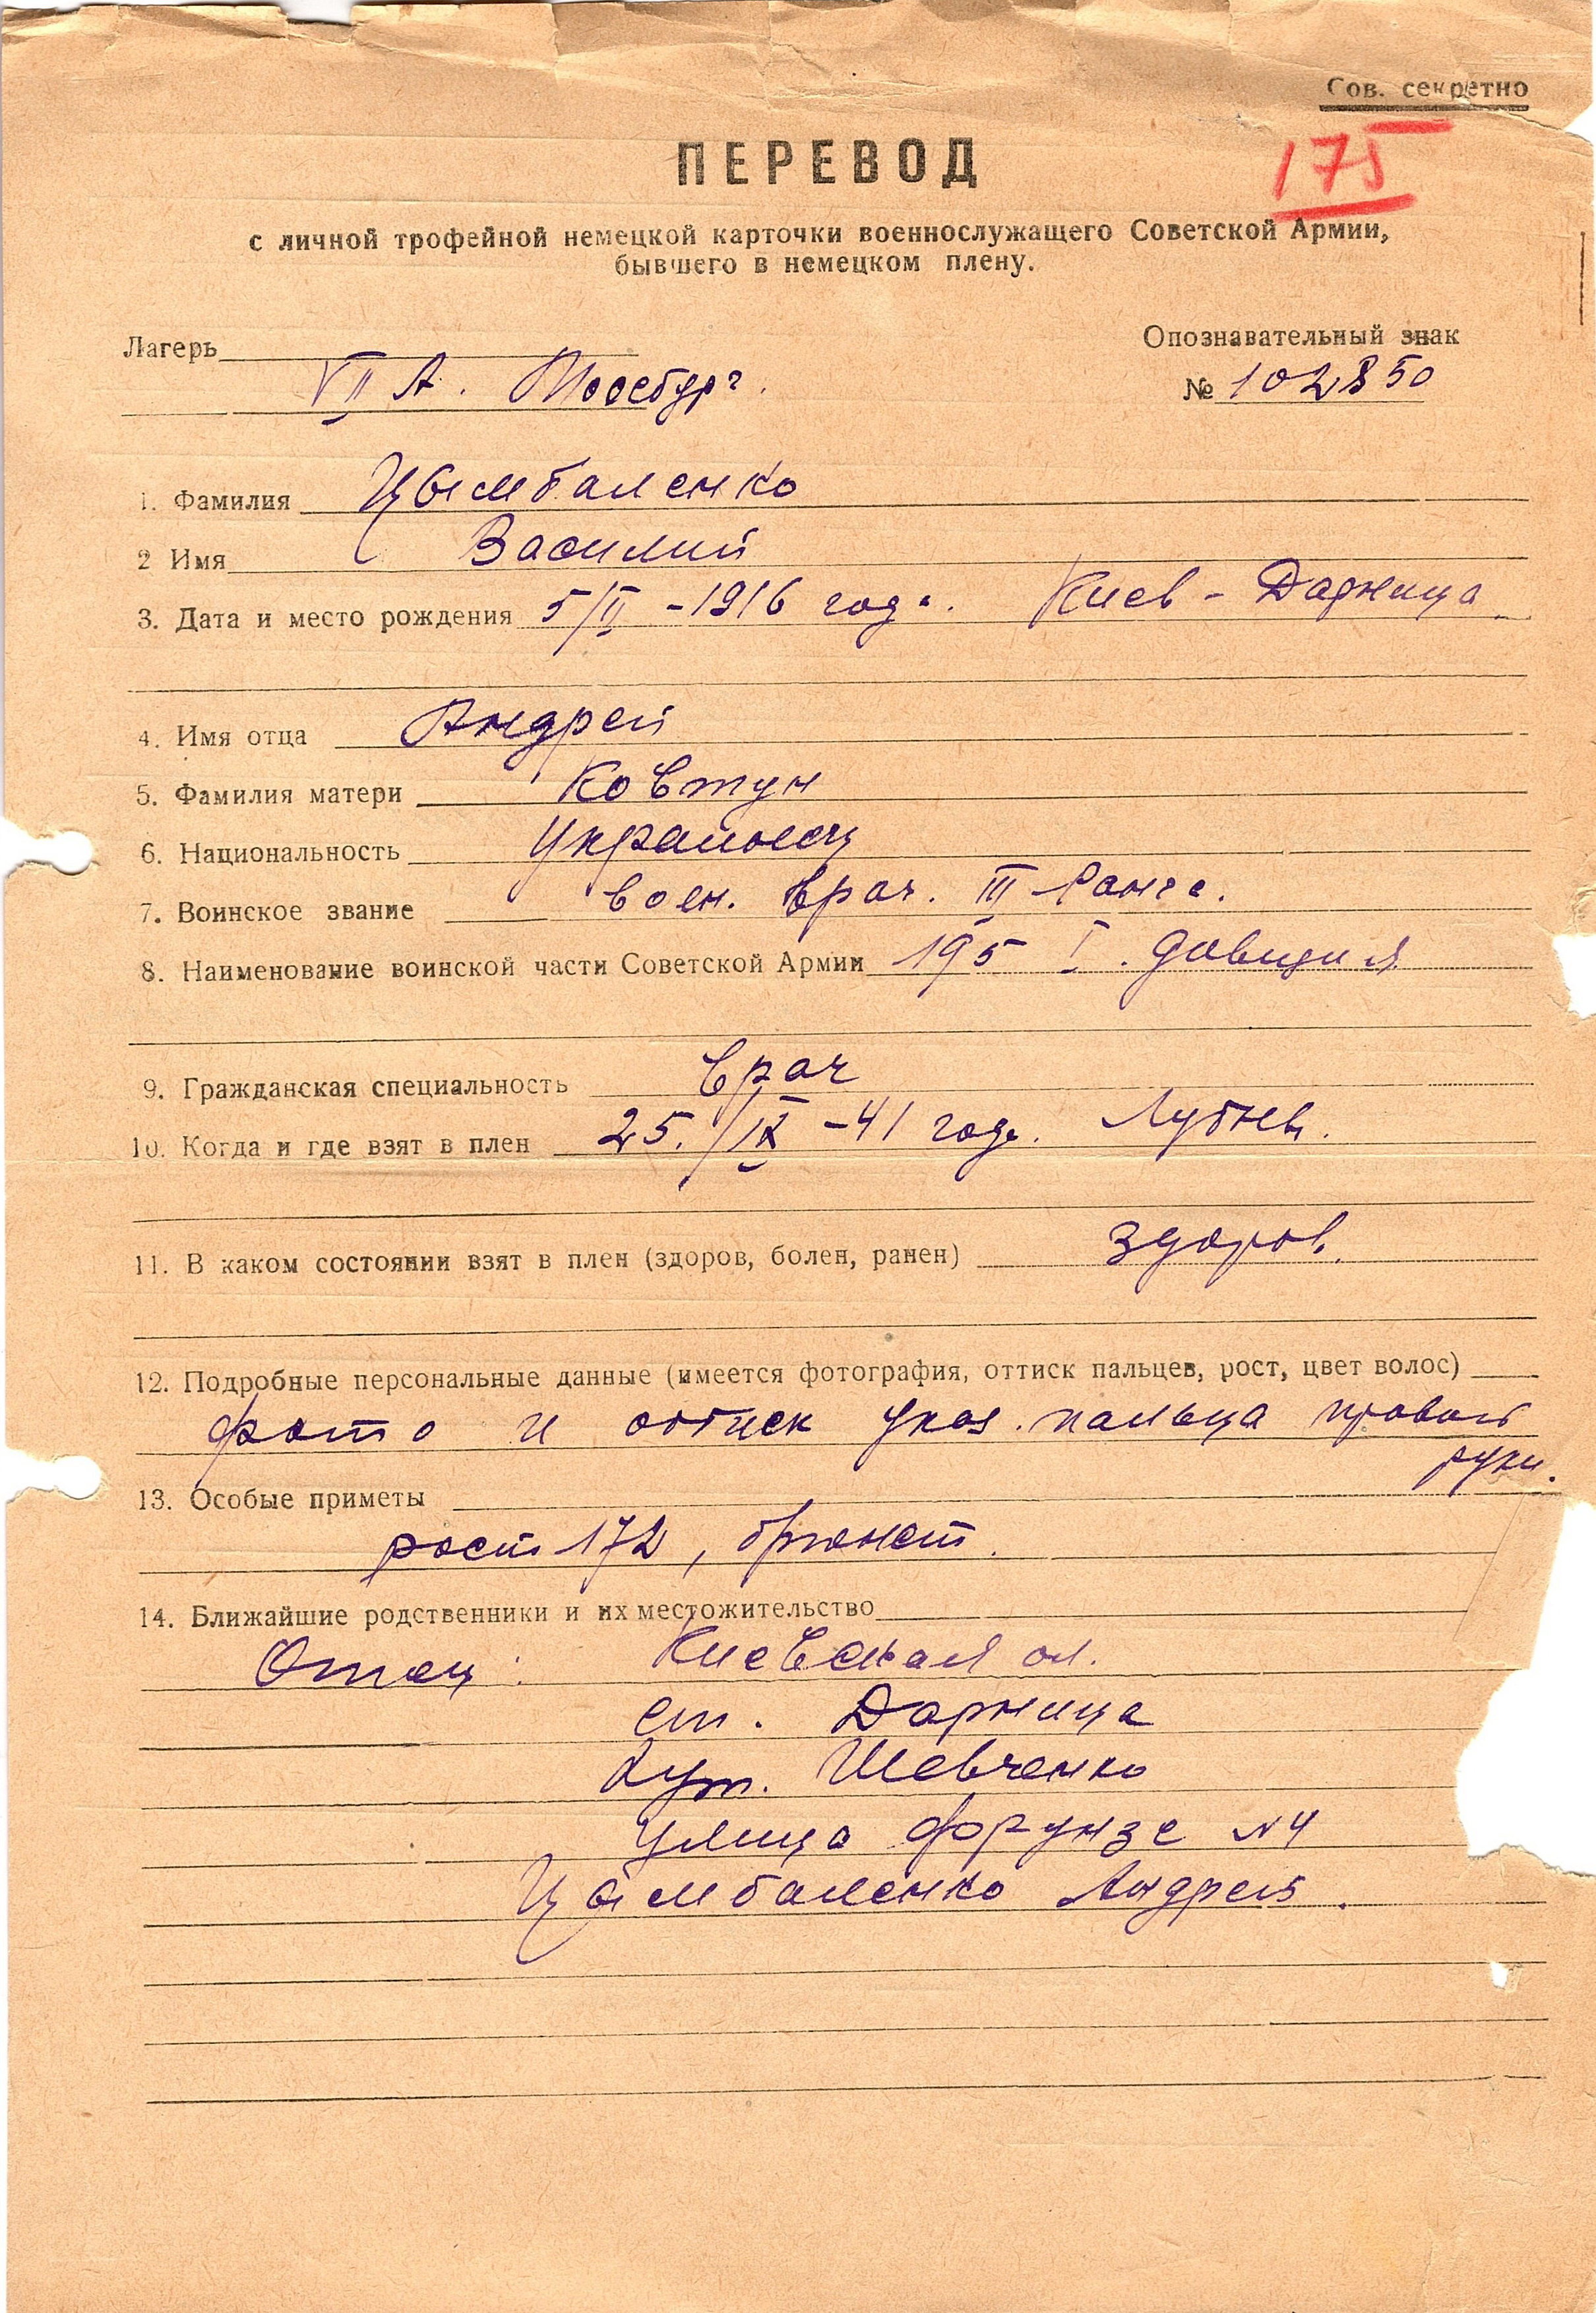 Сов. секретно
175
ПЕРЕВОД
с личной трофейной немецкой карточки военнослужащего Советской Армии,
бывшего в немецком плену.
Лагерь
Опознавательный знак
VII А. Мосебург.
№ 102850
1. Фамилия Цымбаленко
2 Имя Василий
3. Дата и место рождения 5/II -1916 года. Киев - Дарница
4. Имя отца Андрей
5. Фамилия матери Ковтун
6. Национальность Украинец
7. Воинское звание воен. врач. III Ранга.
8. Наименование воинской части Советской Армии 195 I. дивизия
9. Гражданская специальность врач
10. Когда и где взят в плен 25./IX -41 года. Лубны.
11. В каком состоянии взят в плен (здоров, болен, ранен) здоров.
12. Подробные персональные данные (имеется фотография, оттиск пальцев, рост, цвет волос)
фото и оттиск указ. пальца правой
руки.
13. Особые приметы
рост 172, брюнет.
14. Ближайшие родственники и их местожительство
Отец: Киевская ол.
ст. Дарница
хут. Шевченко
улица Фрунзе №4
Цымбаленко Андрей.